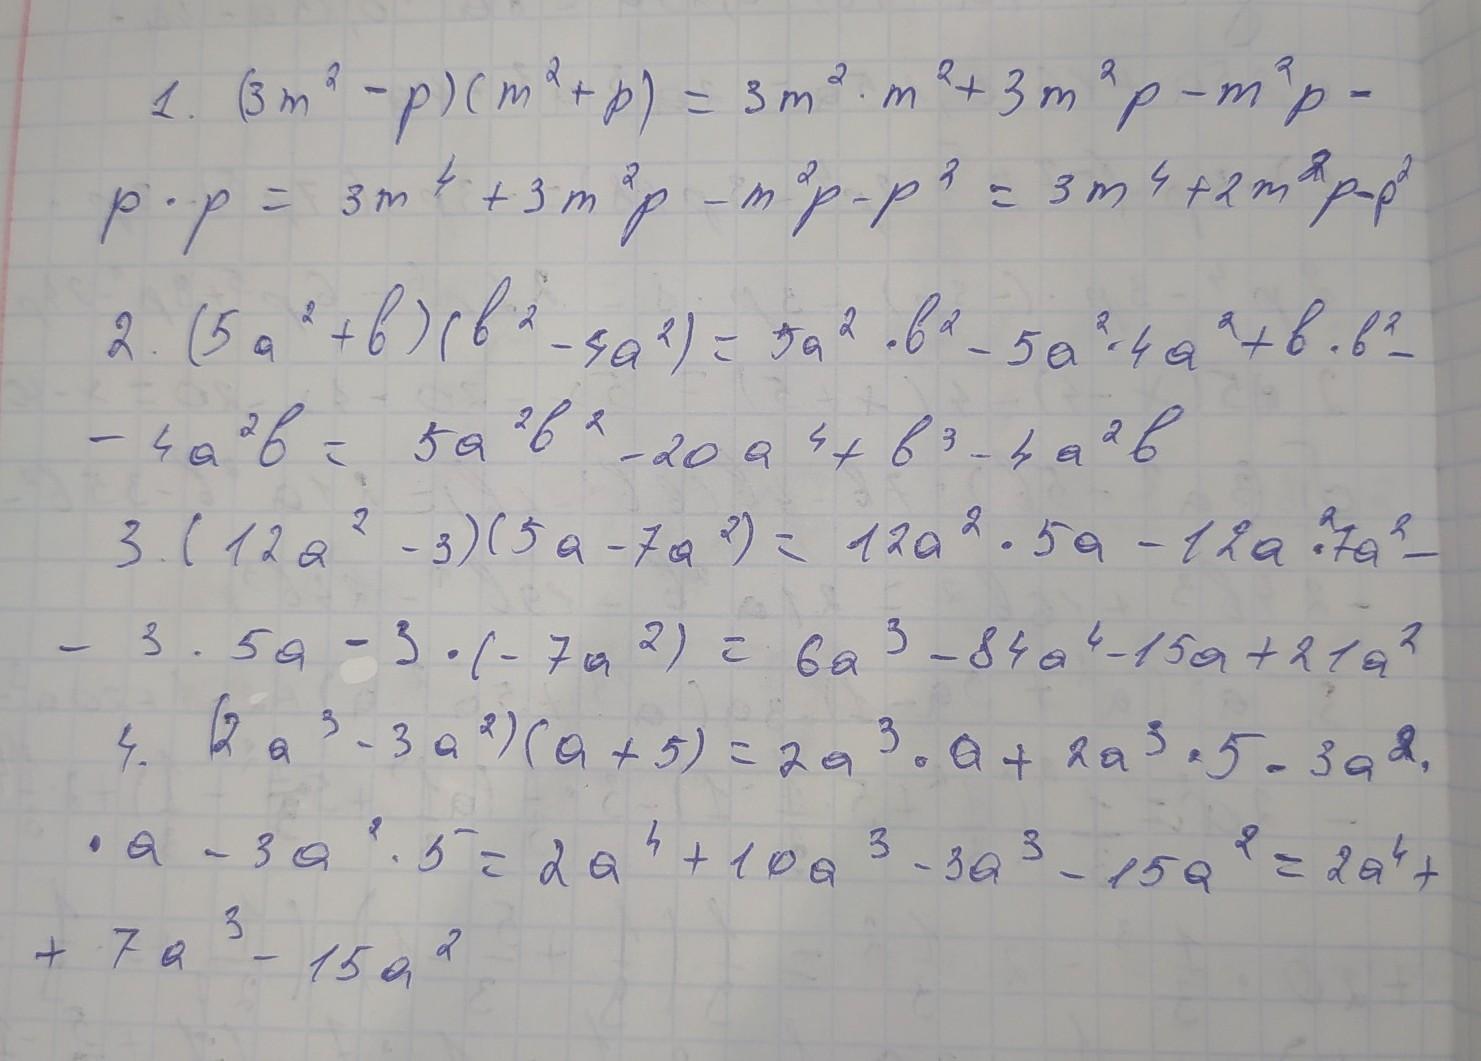 1. (3m² - p)(m² + p) = 3m² · m² + 3m²p - m²p -
p · p = 3m⁴ + 3m²p - m²p - p² = 3m⁴ + 2m²p - p²
2. (5a² + b)(b² - 4a²) = 5a² · b² - 5a² · 4a² + b · b² -
- 4a²b = 5a²b² - 20a⁴ + b³ - 4a²b
3. (12a² - 3)(5a - 7a²) = 12a² · 5a - 12a² · 7a² -
- 3 · 5a - 3 · (- 7a²) = 6a³ - 84a⁴ - 15a + 21a²
4. (2a³ - 3a²)(a + 5) = 2a³ · a + 2a³ · 5 - 3a² ·
· a - 3a² · 5 = 2a⁴ + 10a³ - 3a³ - 15a² = 2a⁴ +
+ 7a³ - 15a²